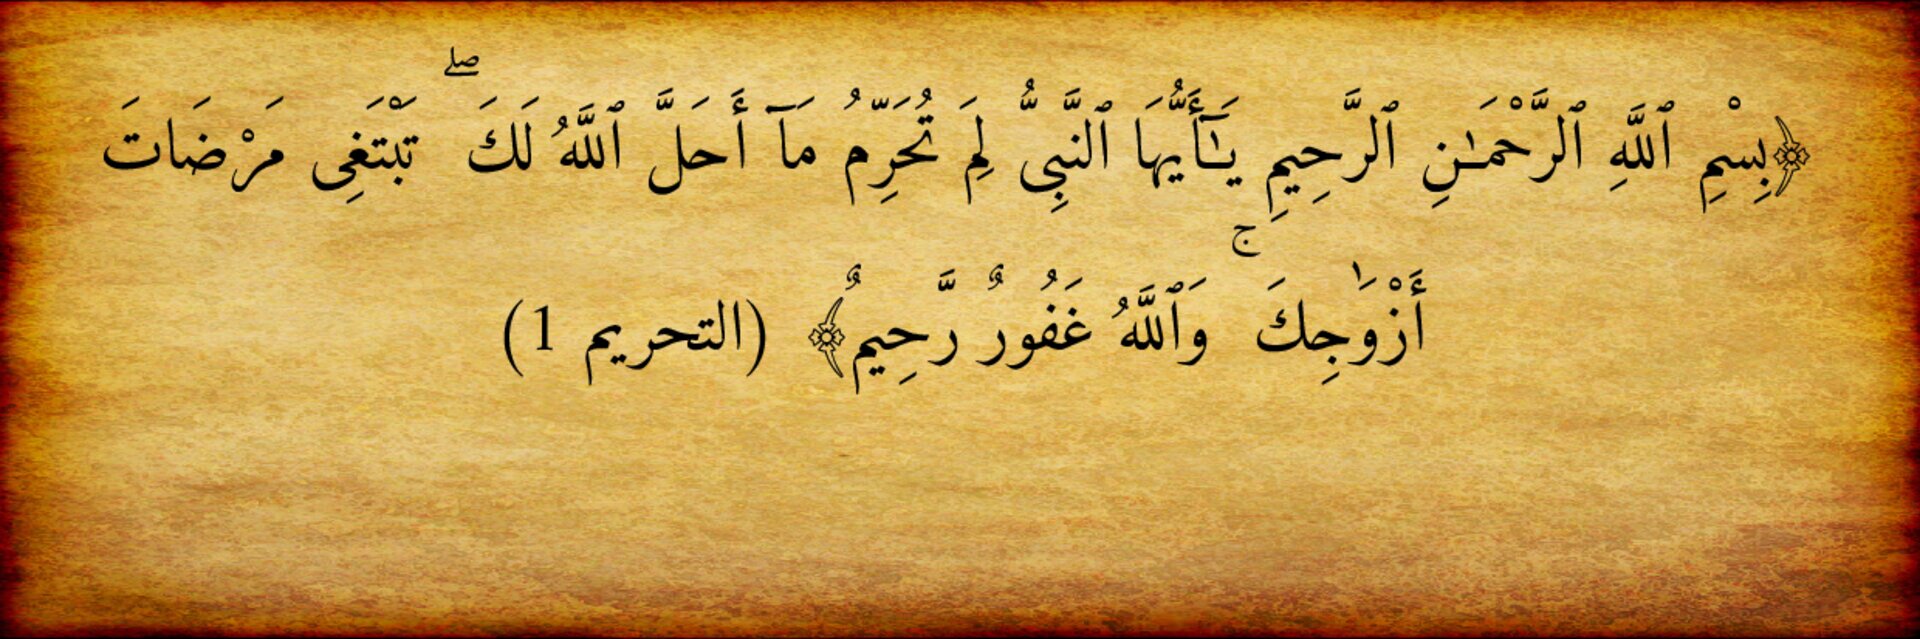 ﴿بِسْمِ ٱللَّهِ ٱلرَّحْمَـٰنِ ٱلرَّحِيمِ يَـٰٓأَيُّهَا ٱلنَّبِىُّ لِمَ تُحَرِّمُ مَآ أَحَلَّ ٱللَّهُ لَكَ ۖ تَبْتَغِى مَرْضَاتَ
أَزْوَٰجِكَ ۚ وَٱللَّهُ غَفُورٌ رَّحِيمٌ﴾ (التحريم 1)